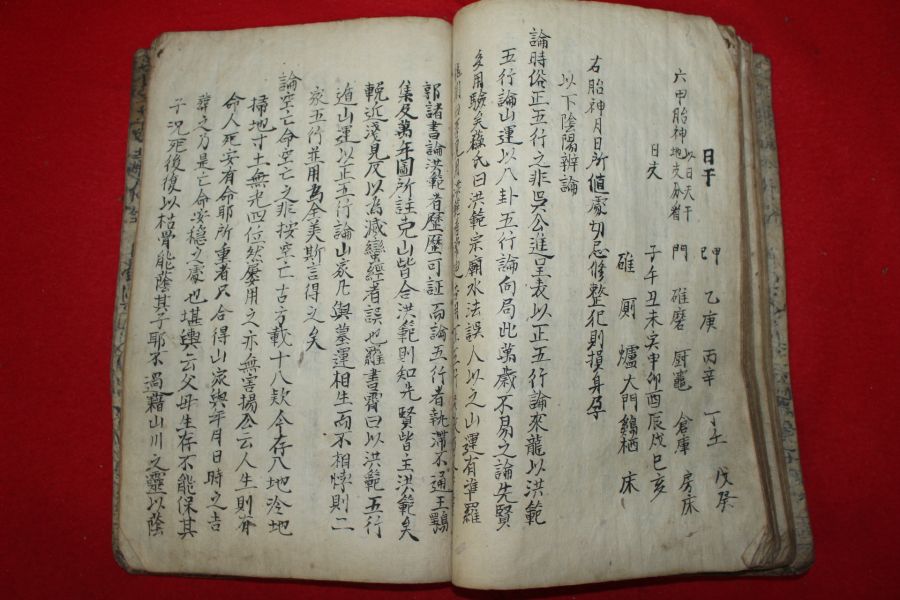 日干 甲 乙庚 丙辛 丁壬 戊癸
六甲胎神 以日天干地支分看 門 碓磨 厨竈 倉庫 房床
日支 子午 丑未 寅申 卯酉 辰戌 巳亥
碓 厠 爐 大門 鷄栖 床
右胎神月日所值處切忌修整犯則損身孕
以下陰陽辨論
論時俗正五行之非吳公進呈表以正五行論來龍以洪範
五行論山運以八卦五行論向局此萬歲不易之論先賢
多用驗矣 氏曰洪範宗廟水法誤人以之山運有準羅
郭諸書論洪範者歷歷可証而論五行者執滯不通王鶚
集及萬年圖所註克山皆合洪範則知先賢皆主洪範矣
輓近淺見反以為滅蠻經者誤也羅書霽曰以洪範五行
遁山運以正五行論山家凡與墓運相生而不相 則二
家五行並用為全美斯言得之矣
論空亡命空亡之非按空亡古方載十八欵今存八地冷地
掃地寸土無光四位然屢用之亦無害楊公云人生則有
命人死安有命耶所重者只合得山家與年月日時之吉
葬之乃是亡命安穩之處也堪輿云父母生存不能保其
子況死後復以枯骨能蔭其子耶不過藉山川之靈以蔭